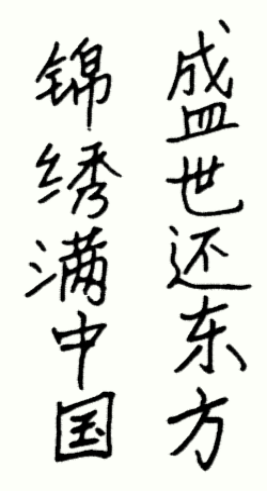 盛世还东方
锦绣满中国